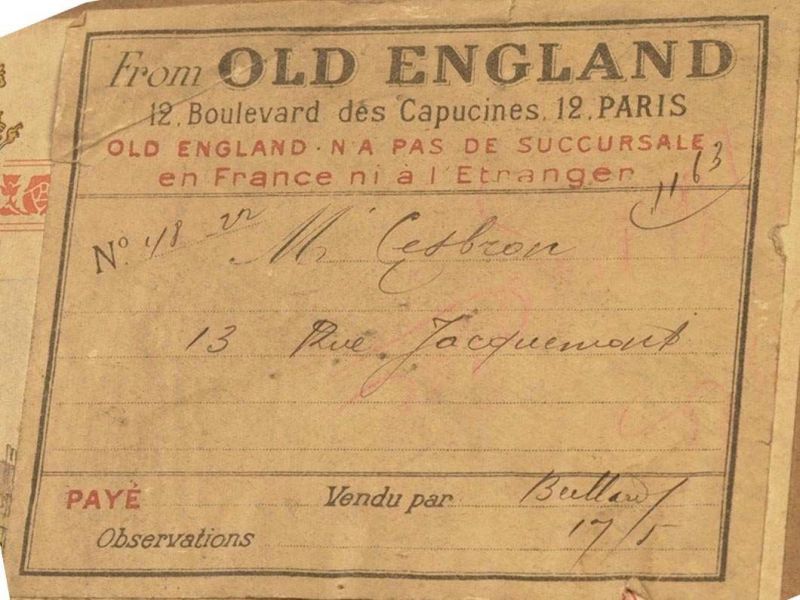 From OLD ENGLAND
12, Boulevard des Capucines, 12, PARIS
OLD ENGLAND · N'A PAS DE SUCCURSALE
en France ni à l'Etranger
1163
No. 48
Mr Cesbron
13 Rue Jacquemont
PAYÉ Vendu par
17/5
Observations